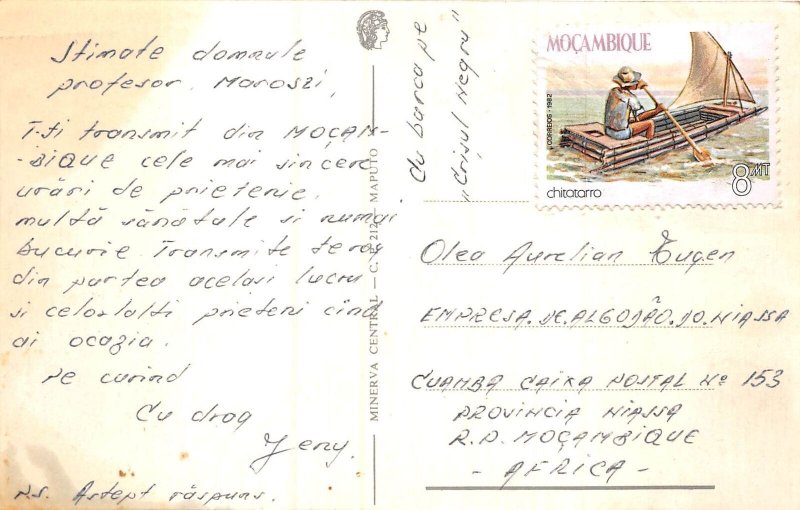 Stimate domnule
profesor. Maroszi,
Iti transmit din MOÇAM-
-BIQUE cele mai sincere
urări de prietenie.
multă sănătate si numai
bucurie. Transmite te rog
din partea aceluasi lucru
si celorlalti prieteni cînd
ai ocazia.
Pe curind
Cu drag
Jeny.
P.S. Astept răspuns.
MINERVA CENTRAL — C. P. 212 — MAPUTO
Cu barca pe
"Crisul Negru"
MOÇAMBIQUE
CORREIOS · 1982
8 MT
chitatarro
Olea Aurelian Eugen
EMPRESA.DE.ALGODÃO.DO.NIASSA
CUAMBA CAIXA POSTAL Nº 153
PROVINCIA NIASSA
R.P. MOÇAMBIQUE
- AFRICA -